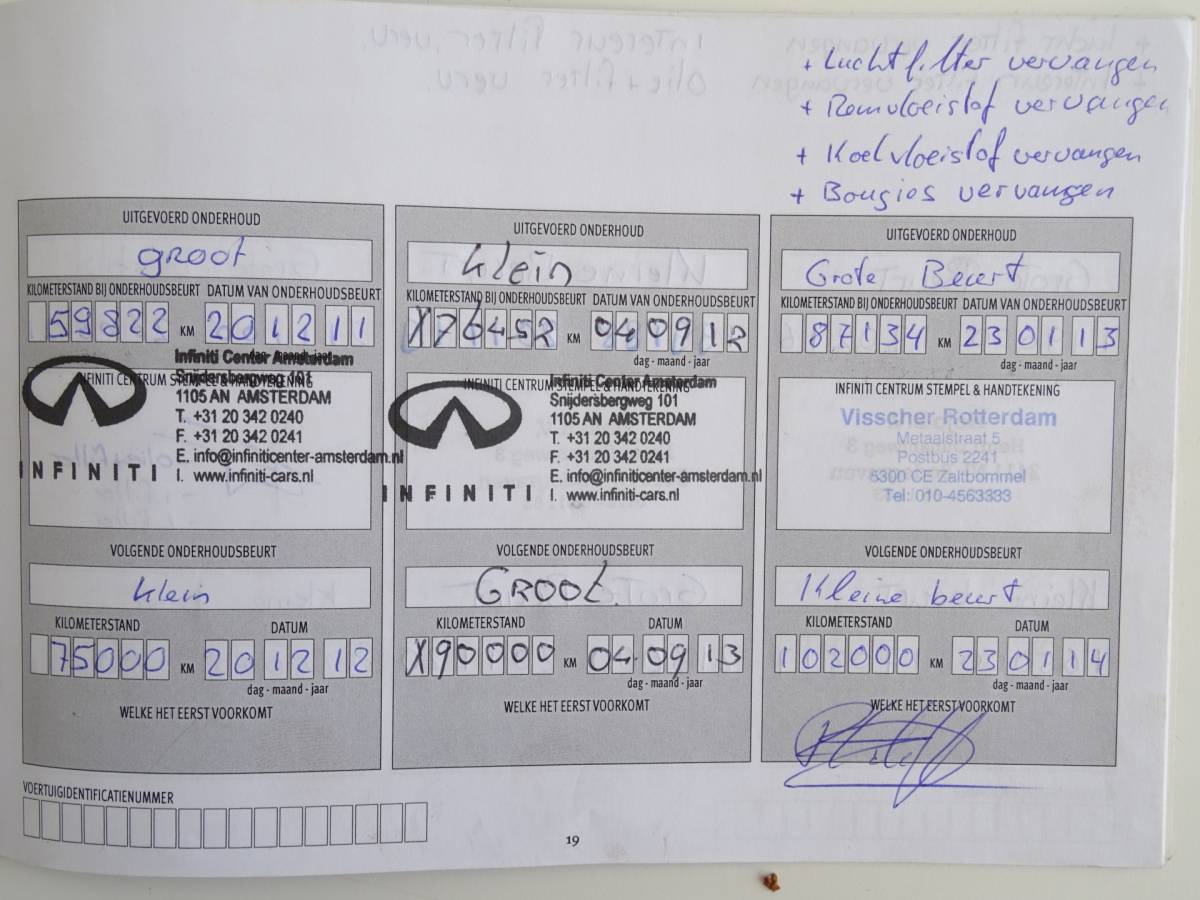 + Luchtfilter vervangen
+ Remvloeistof vervangen
+ Koelvloeistof vervangen
+ Bougies vervangen
UITGEVOERD ONDERHOUD
groot
KILOMETERSTAND BIJ ONDERHOUDSBEURT DATUM VAN ONDERHOUDSBEURT
59822 KM 201211
dag - maand - jaar
INFINITI CENTRUM STEMPEL & HANDTEKENING
Infiniti Center Amsterdam
Snijdersbergweg 101
1105 AN AMSTERDAM
T. +31 20 342 0240
F. +31 20 342 0241
E. info@infiniticenter-amsterdam.nl
I. www.infiniti-cars.nl
INFINITI
VOLGENDE ONDERHOUDSBEURT
klein
KILOMETERSTAND DATUM
75000 KM 201212
dag - maand - jaar
WELKE HET EERST VOORKOMT
UITGEVOERD ONDERHOUD
klein
KILOMETERSTAND BIJ ONDERHOUDSBEURT DATUM VAN ONDERHOUDSBEURT
X76452 KM 040912
dag - maand - jaar
INFINITI CENTRUM STEMPEL & HANDTEKENING
Infiniti Center Amsterdam
Snijdersbergweg 101
1105 AN AMSTERDAM
T. +31 20 342 0240
F. +31 20 342 0241
E. info@infiniticenter-amsterdam.nl
I. www.infiniti-cars.nl
INFINITI
VOLGENDE ONDERHOUDSBEURT
GROOT.
KILOMETERSTAND DATUM
X90000 KM 040913
dag - maand - jaar
WELKE HET EERST VOORKOMT
UITGEVOERD ONDERHOUD
Grote Beurt
KILOMETERSTAND BIJ ONDERHOUDSBEURT DATUM VAN ONDERHOUDSBEURT
87134 KM 230113
dag - maand - jaar
INFINITI CENTRUM STEMPEL & HANDTEKENING
Visscher Rotterdam
Metaalstraat 5
Postbus 2241
5300 CE Zaltbommel
Tel: 010-4563333
VOLGENDE ONDERHOUDSBEURT
Kleine beurt
KILOMETERSTAND DATUM
102000 KM 230114
dag - maand - jaar
WELKE HET EERST VOORKOMT
VOERTUIGIDENTIFICATIENUMMER
19